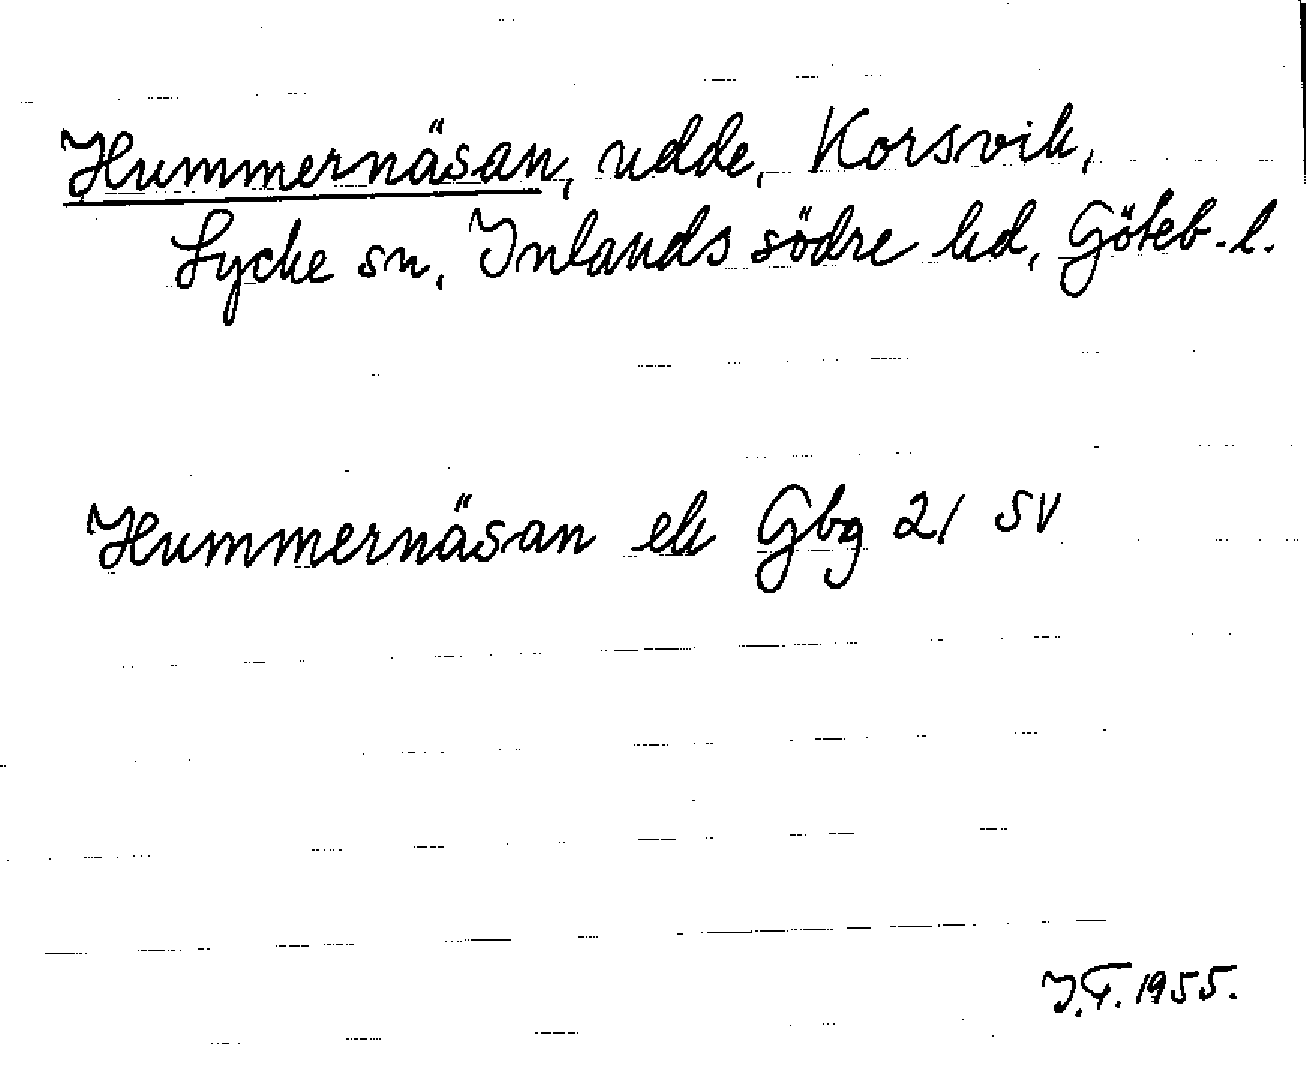 Hummernäsan, udde, Korsvik,
Lycke sn, Inlands södre hd, Göteb.l.
Hummernäsan ek Gbg 21 SV
I.F. 1955.